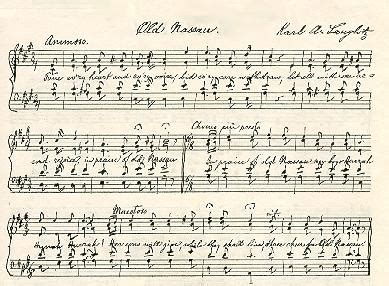 Old Nassau. Karl A. Langlotz
Animoso.
Tune every heart and every voice, bid every care withdraw, let all with one a-
cord rejoice, in praise of Old Nassau In praise of old Nassau my boys Hurrah
Chorus più presto
Maestoso
Hurrah Hurrah! Her sons will give, while they shall live, three cheers for Old Nassau